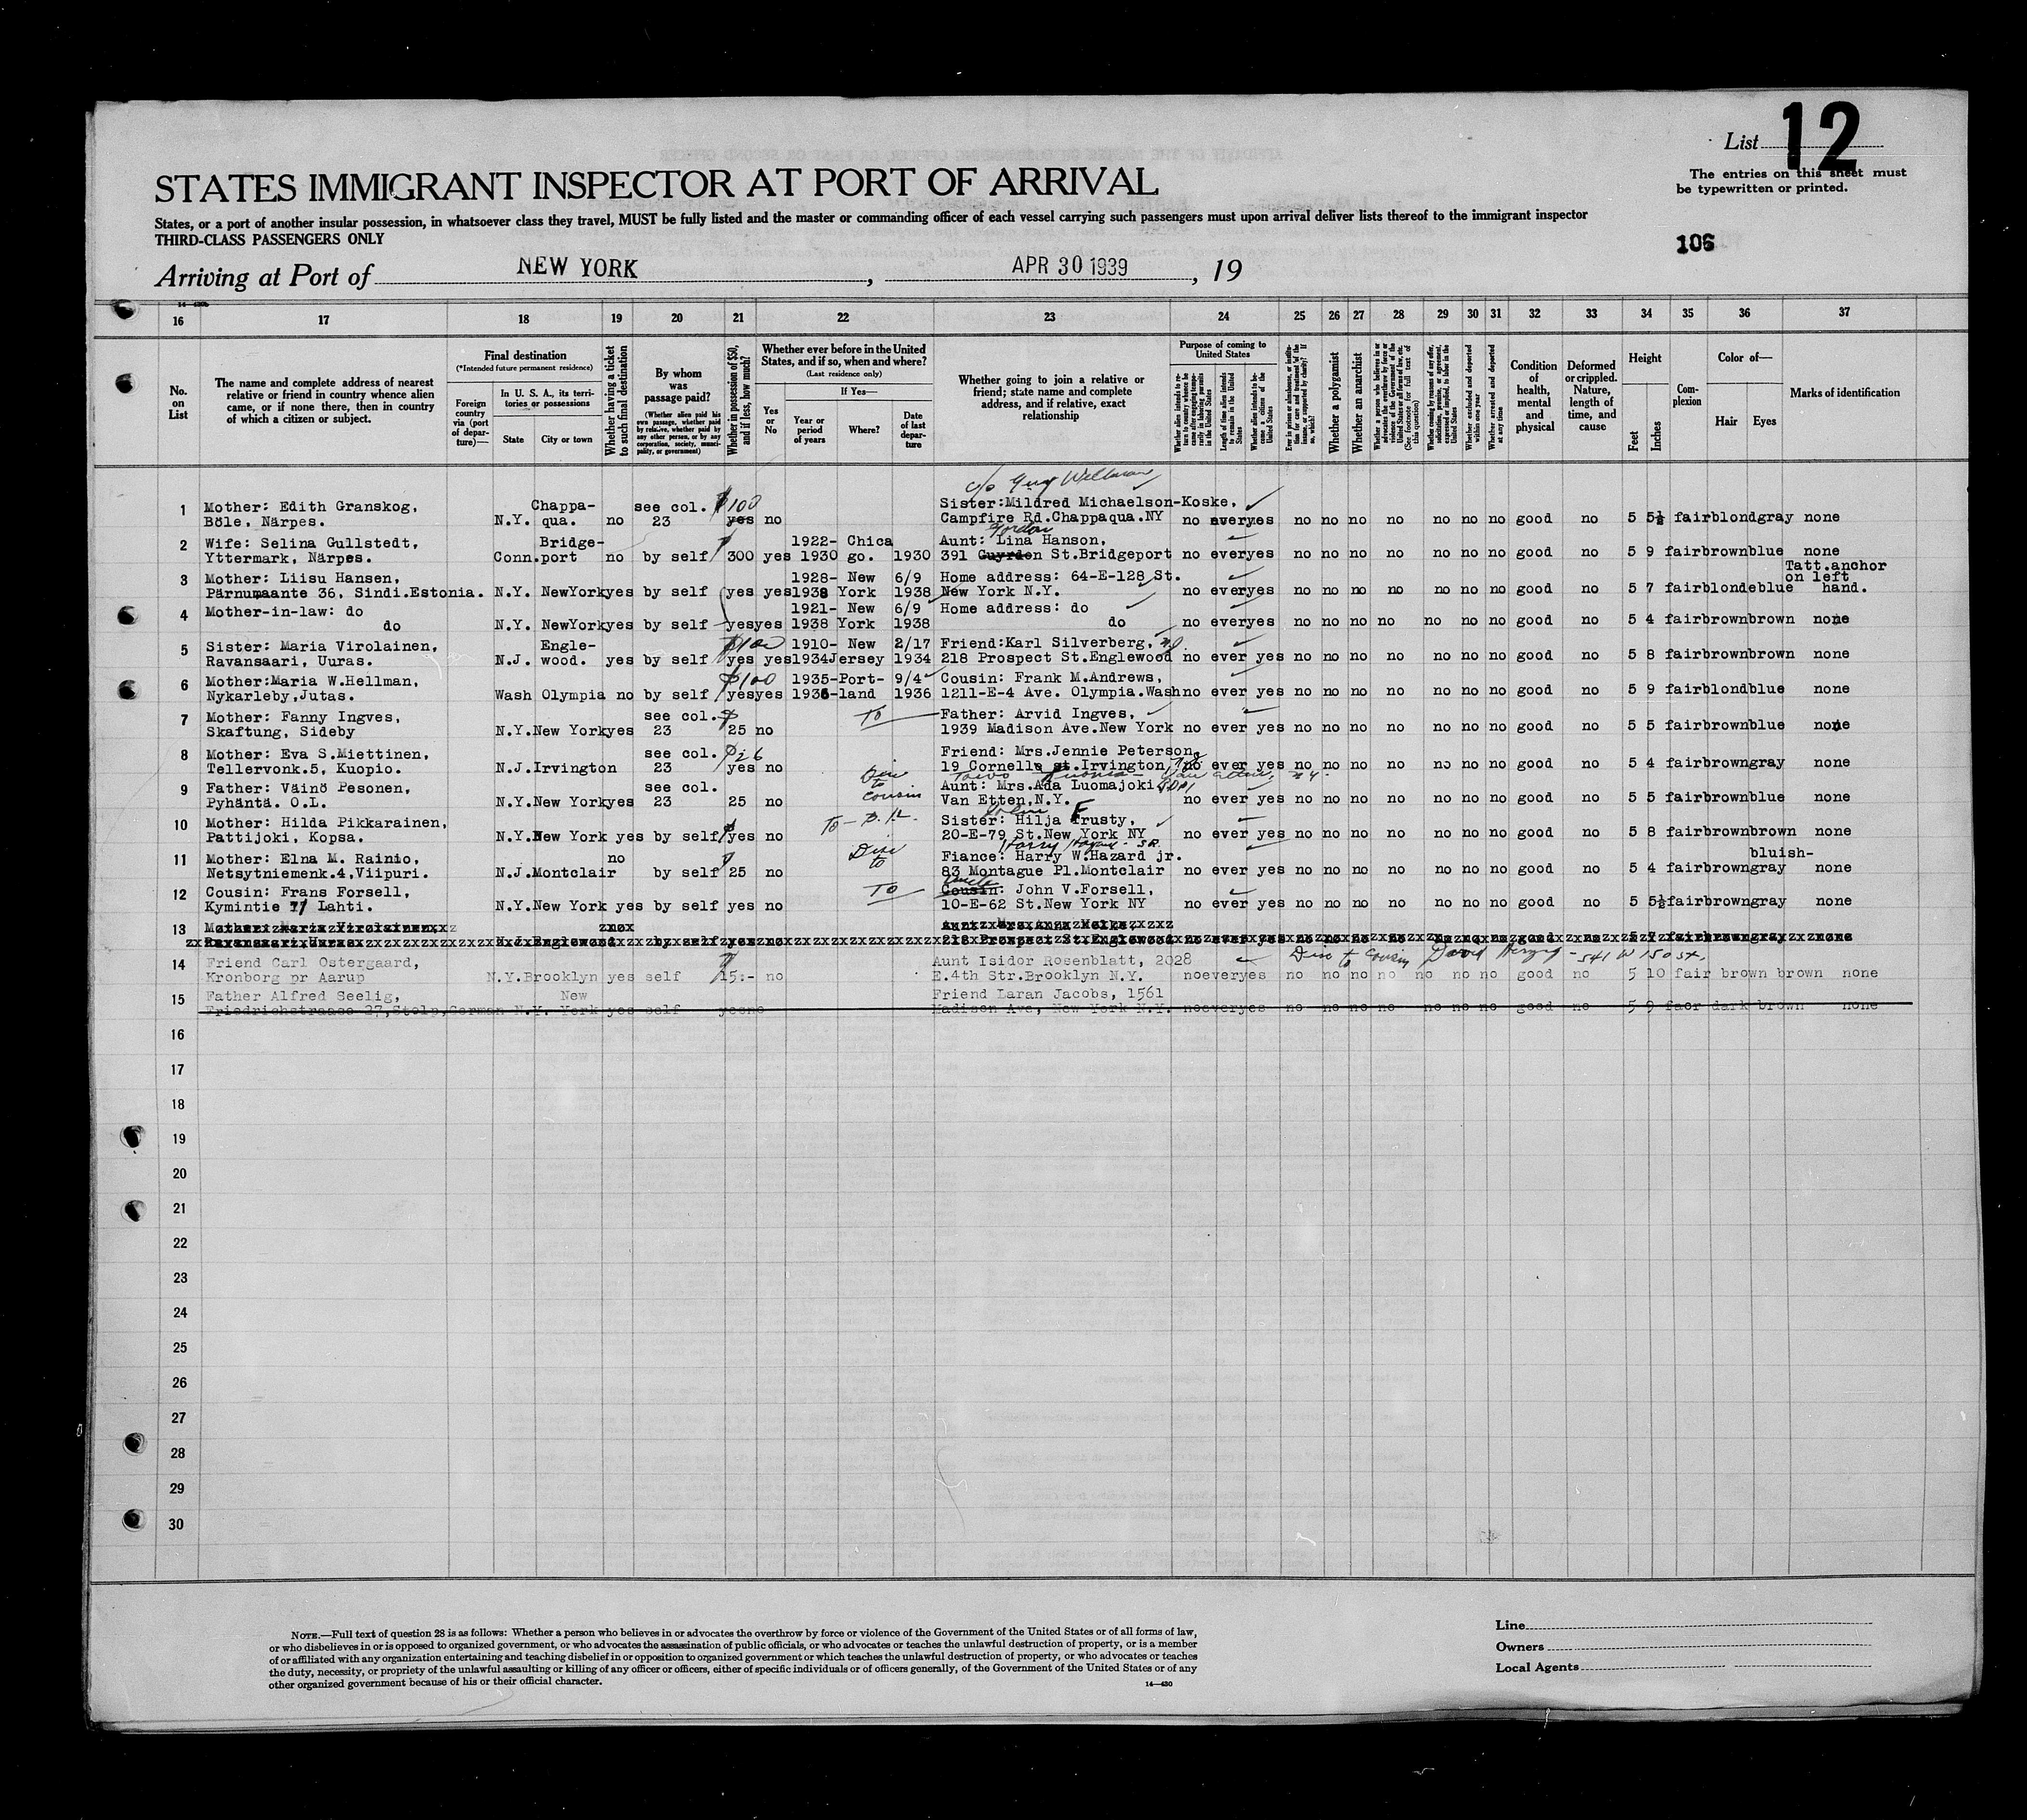 List 12
The entries on this sheet must
be typewritten or printed.
STATES IMMIGRANT INSPECTOR AT PORT OF ARRIVAL
States, or a port of another insular possession, in whatsoever class they travel, MUST be fully listed and the master or commanding officer of each vessel carrying such passengers must upon arrival deliver lists thereof to the immigrant inspector
THIRD-CLASS PASSENGERS ONLY
106
Arriving at Port of NEW YORK, APR 30 1939, 19
16 17 18 19 20 21 22 23 24 25 26 27 28 29 30 31 32 33 34 35 36 37
No. on List
The name and complete address of nearest relative or friend in country whence alien came, or if none there, then in country of which a citizen or subject.
Final destination
(*Intended future permanent residence)
Foreign country via (port of departure)—
In U. S. A., its territories or possessions
State
City or town
Whether having a ticket to such final destination
By whom was passage paid?
(Whether alien paid his own passage, whether paid by relative, whether paid by any other person, or by any corporation, society, municipality, or government)
Whether in possession of $50, and if less, how much?
Whether ever before in the United States, and if so, when and where?
(Last residence only)
Yes or No
If Yes—
Year or period of years
Where?
Date of last departure
Whether going to join a relative or friend; state name and complete address, and if relative, exact relationship
Purpose of coming to United States
Whether alien intends to return to country whence he came after engaging temporarily in laboring pursuits in the United States
Length of time alien intends to remain in the United States
Whether alien intends to become a citizen of the United States
Ever in prison or almshouse, or institution for care and treatment of the insane, or supported by charity? If so, which?
Whether a polygamist
Whether an anarchist
(See footnote for full text of this question)
Whether coming by reason of any offer, solicitation, promise, or agreement, expressed or implied, to labor in the United States
Whether excluded and deported within one year
Whether arrested and deported at any time
Condition of health, mental and physical
Deformed or crippled. Nature, length of time, and cause
Height
Feet
Inches
Complexion
Color of—
Hair
Eyes
Marks of identification
c/o Guy Wellman
1 Mother: Edith Granskog, Chappa- see col. $100 Sister:Mildred Michaelson-Koske,
Böle, Närpes. N.Y. qua. no 23 yes no Campfire Rd.Chappaqua.NY no everyes no no no no no no no good no 5 5½ fairblondgray none
2 Wife: Selina Gullstedt, Bridge- 1922- Chica Aunt: Lina Hanson,
Yttermark, Närpes. Conn.port no by self 300 yes 1930 go. 1930 391 Guyrden St.Bridgeport no everyes no no no no no no no good no 5 9 fairbrownblue none
Gordon
3 Mother: Liisu Hansen, 1928- New 6/9 Home address: 64-E-128 St. Tatt.anchor
on left
Pärnumaante 36, Sindi.Estonia. N.Y. NewYorkyes by self yes yes1938 York 1938 New York N.Y. no everyes no no no no no no no good no 5 7 fairblondeblue hand.
4 Mother-in-law: do 1921- New 6/9 Home address: do
do N.Y. NewYorkyes by self yesyes 1938 York 1938 do no everyes no no no no no no no good no 5 4 fairbrownbrown none
5 Sister: Maria Virolainen, Engle- $100 1910- New 2/17 Friend:Karl Silverberg,
Ravansaari, Uuras. N.J. wood. yes by self yes yes1934Jersey 1934 218 Prospect St.Englewood no ever yes no no no no no no no good no 5 8 fairbrownbrown none
6 Mother:Maria W.Hellman, $100 1935-Port- 9/4 Cousin: Frank M.Andrews,
Nykarleby,Jutas. Wash Olympia no by self yesyes 1936-land 1936 1211-E-4 Ave. Olympia.Washno ever yes no no no no no no no good no 5 9 fairblondblue none
7 Mother: Fanny Ingves, see col. $ TO Father: Arvid Ingves,
Skaftung, Sideby N.Y.New Yorkyes 23 25 no 1939 Madison Ave.New York no ever yes no no no no no no no good no 5 5 fairbrownblue none
8 Mother: Eva S.Miettinen, see col. $26 Friend: Mrs.Jennie Peterson,
Tellervonk.5, Kuopio. N.J.Irvington 23 yes no 19 Cornells st.Irvington, no ever yes no no no no no no no good no 5 4 fairbrowngray none
9 Father: Väinö Pesonen, see col. to cousin Aunt: Mrs.Ada Luomajoki
Pyhäntä. O.L. N.Y.New Yorkyes 23 25 no Van Etten,N.Y. no ever yes no no no no no no no good no 5 5 fairbrownblue none
10 Mother: Hilda Pikkarainen, Sister: Hilja Trusty,
Pattijoki, Kopsa. N.Y.New York yes by self $yes no 20-E-79 St.New York NY no ever yes no no no no no no no good no 5 8 fairbrownbrown none
Harry Hazard - SR.
11 Mother: Elna M. Rainio, no to Fiance: Harry W.Hazard jr. bluish-
Netsytniemenk.4,Viipuri. N.J.Montclair by self 25 no 83 Montague Pl.Montclair no ever yes no no no no no no no good no 5 4 fairbrowngray none
Uncle
12 Cousin: Frans Forsell, TO Cousin: John V.Forsell,
Kymintie 11 Lahti. N.Y.New York yes by self yes no 10-E-62 St.New York NY no ever yes no no no no no no no good no 5 5½fairbrowngray none
13 Mother: Maria Virolainen, no Aunt: Mrs.Anna Melke,
Ravansaari,Uuras. N.J.Englewood by self yes no 218 Prospect St.Englewood no ever yes no no no no no no no good no 5 7 fairbrowngray none
14 Friend Carl Ostergaard, Aunt Isidor Rosenblatt, 2028 to Cousin David - 541 W 150 St.
Kronborg pr Aarup N.Y.Brooklyn yes self 15:- no E.4th Str.Brooklyn N.Y. noeveryes no no no no no no no good no 5 10 fair brown brown none
15 Father Alfred Seelig, New Friend Laran Jacobs, 1561
Friedrichstrasse 27,Stolp,German N.Y. York yes self yesno Madison Ave, New York N.Y. noeveryes no no no no no no no good no 5 9 faor dark brown none
16
17
18
19
20
21
22
23
24
25
26
27
28
29
30
NOTE.—Full text of question 28 is as follows: Whether a person who believes in or advocates the overthrow by force or violence of the Government of the United States or of all forms of law,
or who disbelieves in or is opposed to organized government, or who advocates the assassination of public officials, or who advocates or teaches the unlawful destruction of property, or is a member
of or affiliated with any organization entertaining and teaching disbelief in or opposition to organized government or which teaches the unlawful destruction of property, or who advocates or teaches
the duty, necessity, or propriety of the unlawful assaulting or killing of any officer or officers, either of specific individuals or of officers generally, of the Government of the United States or of any
other organized government because of his or their official character.
14—430
Line
Owners
Local Agents